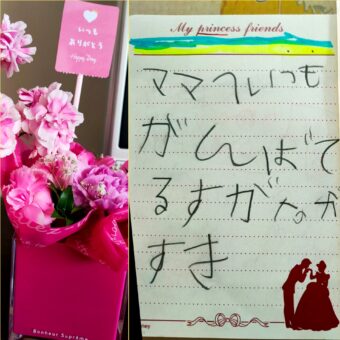 いつも
ありがとう
Happy Day
Bonheur Suprême
My princess friends
ママへいつも
がんばて
るすがたがか
すき